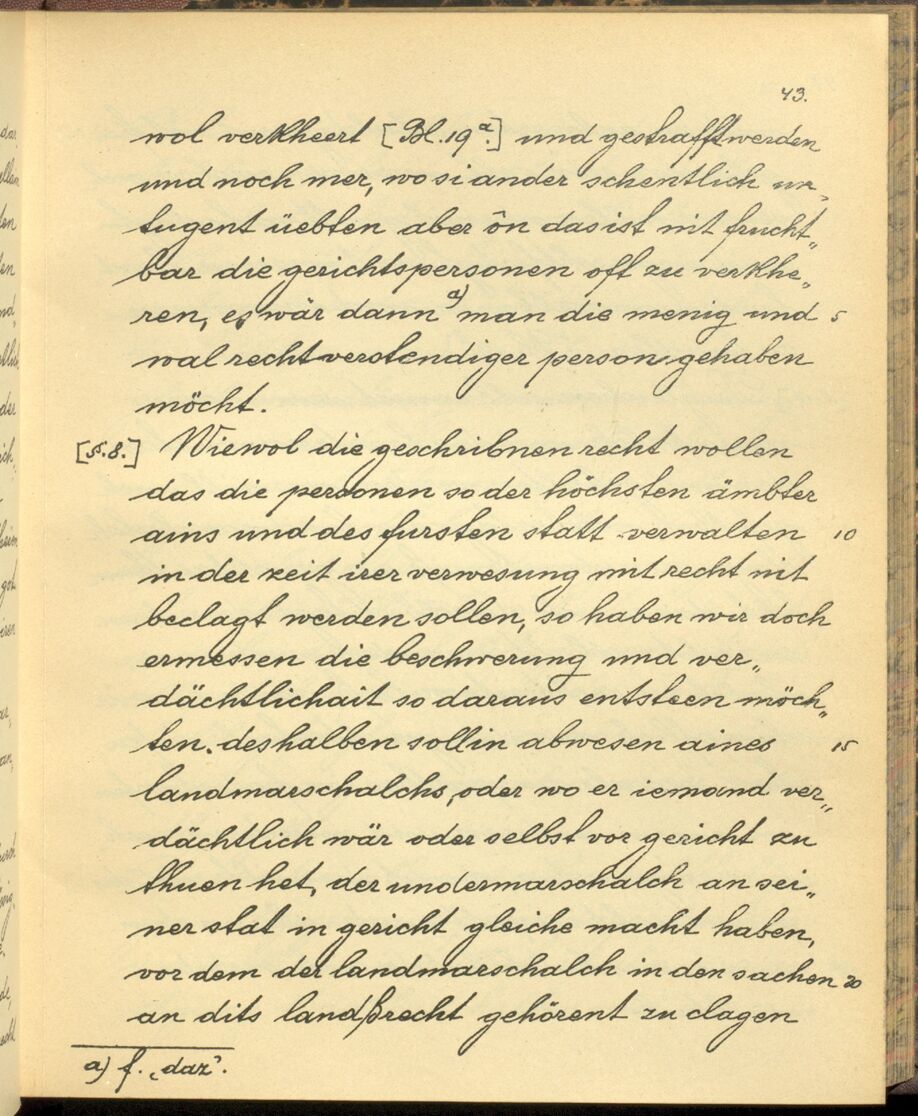 43.
wol verkheert [Bl. 19ª.] und gestrafft werden
und noch mer, wo si ander schentlich un„
tugent üebten aber ôn das ist nit frucht„
bar die gerichtspersonen oft zu verkhe„
ren, es wär dann a) man die menig und 5
wal rechtverstendiger person gehaben
möcht.
[§. 8.] Wiewol die geschribnen recht wollen
das die personen so der höchsten ämbter
ains und des fursten statt verwalten 10
in der zeit irer verwesung mit recht nit
beclagt werden sollen, so haben wir doch
ermessen die beschwerung und ver„
dächtlichait so daraus entsteen möch„
ten. deshalben soll in abwesen aines 15
landmarschalchs, oder wo er iemand ver„
dächtlich wär oder selbst vor gericht zu
thuen het, der undermarschalch an sei„
ner stat in gericht gleiche macht haben,
vor dem der landmarschalch in den sachen 20
an dits landßrecht gehörent zu clagen
a) f. „daz".